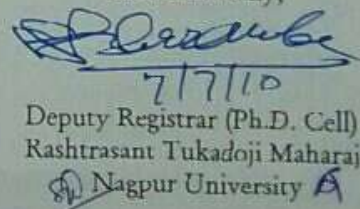 7/7/10
Deputy Registrar (Ph.D. Cell)
Rashtrasant Tukadoji Maharaj
Nagpur University